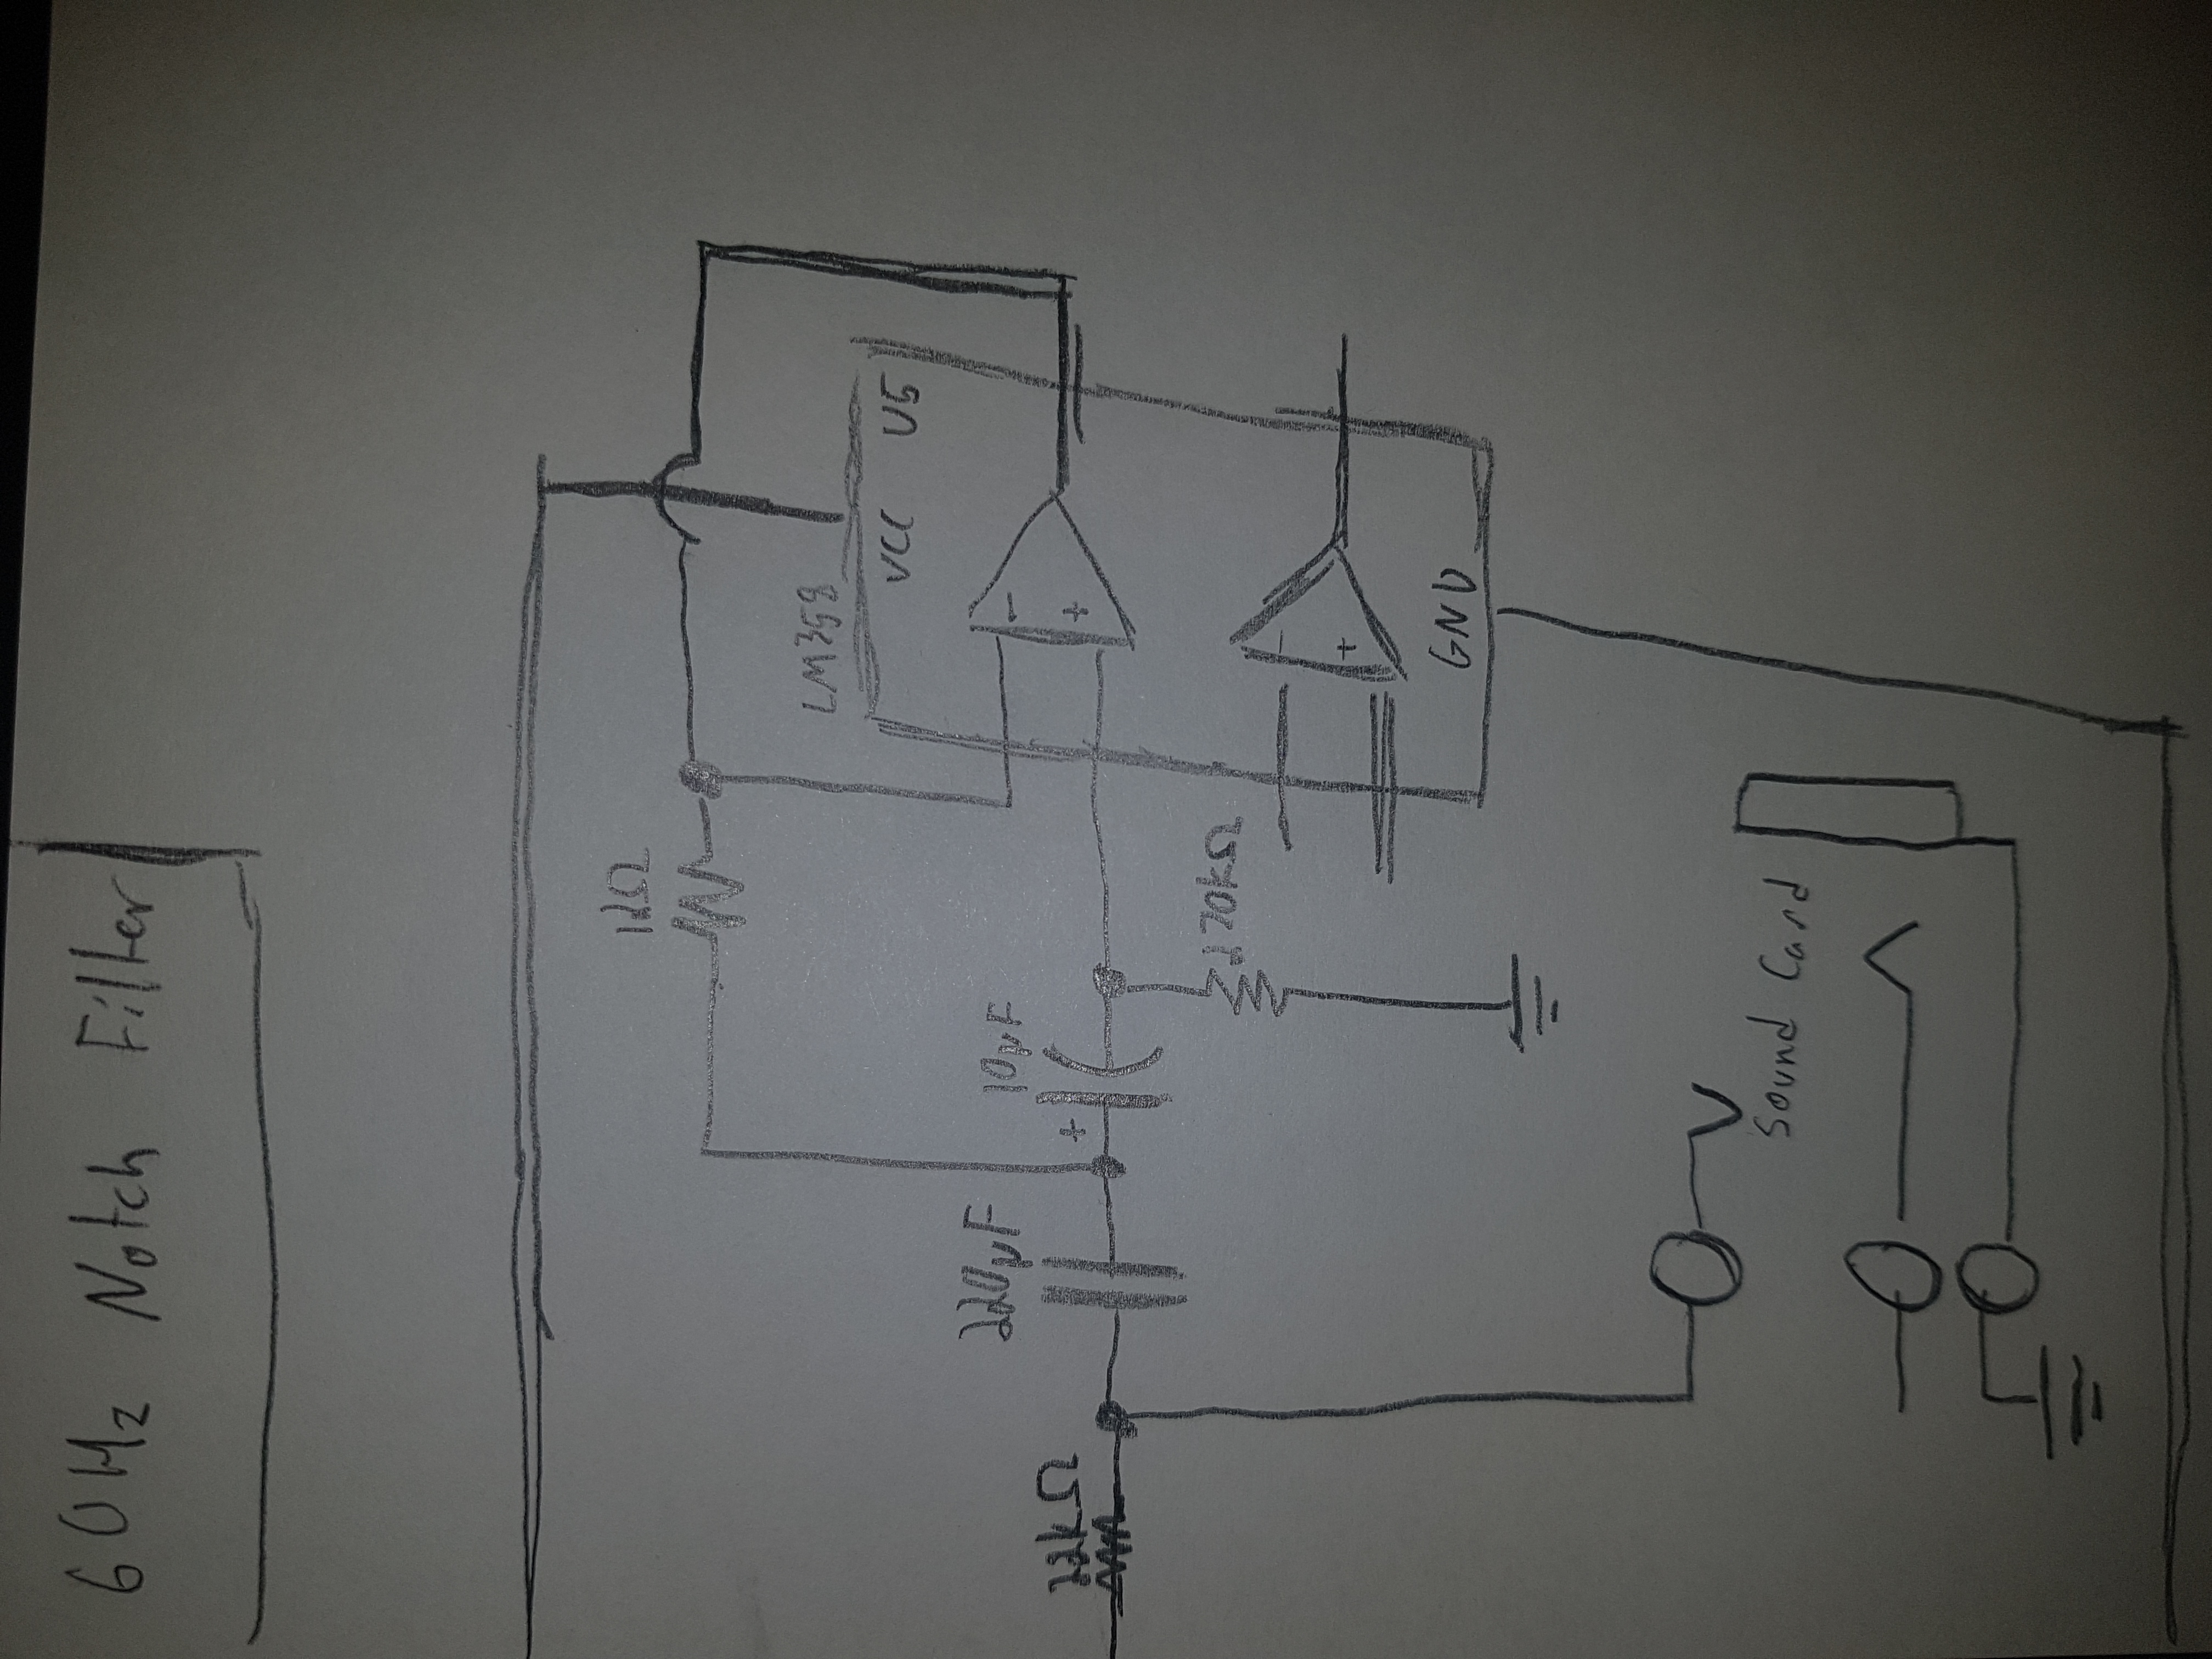 60Hz Notch Filter
1kΩ
LM358
VCC U5
220μF
10μF
22kΩ
+
-
+
270kΩ
-
+
GND
Sound Card